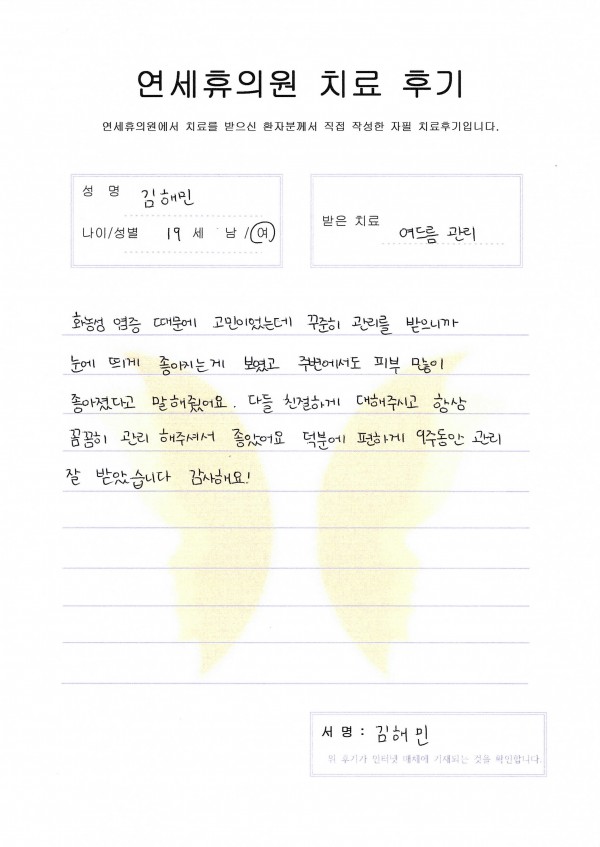 연세휴의원 치료 후기
연세휴의원에서 치료를 받으신 환자분께서 직접 작성한 자필 치료후기입니다.
성 명 김해민
나이/성별 19 세 남 / 여
받은 치료 여드름 관리
화농성 염증 때문에 고민이었는데 꾸준히 관리를 받으니까
눈에 띄게 좋아지는게 보였고 주변에서도 피부 많이
좋아졌다고 말해줬어요. 다들 친절하게 대해주시고 항상
꼼꼼히 관리 해주셔서 좋았어요 덕분에 편하게 9주동안 관리
잘 받았습니다 감사해요!
서 명 : 김해민
위 후기가 인터넷 매체에 기재되는 것을 확인합니다.